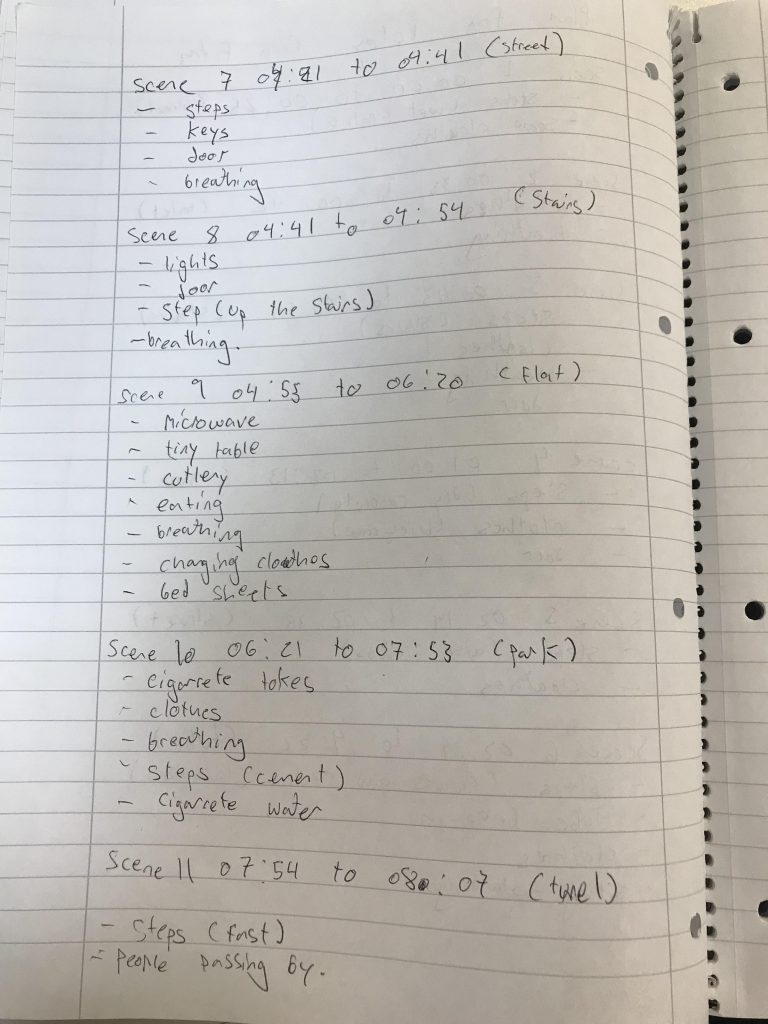 Scene 7 04:21 to 04:41 (street)
- steps
- keys
- door
- breathing
Scene 8 04:41 to 04:54 (Stairs)
- lights
- door
- Step (up the stairs)
- breathing.
Scene 9 04:55 to 06:20 (Flat)
- Microwave
- tiny table
- cutlery
- eating
- breathing
- changing cloothos
- bed sheets
Scene 10 06:21 to 07:53 (park)
- cigarrete tokes
- clothes
- breathing
- Steps (cement)
- Cigarrete water
Scene 11 07:54 to 08:07 (tunel)
- Steps (fast)
- People passing by.